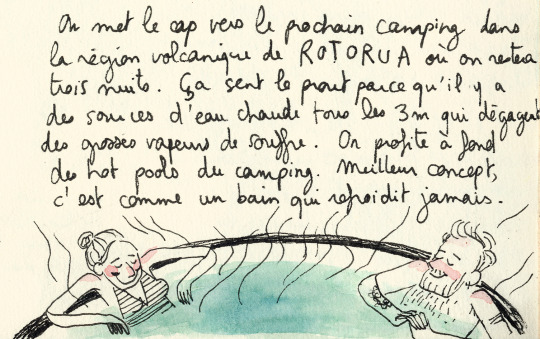 On met le cap vers le prochain camping dans
la région volcanique de ROTORUA où on restera
trois nuits. Ça sent le prout parce qu'il y a
des sources d'eau chaude tous les 3m qui dégagent
des grosses vapeurs de souffre. On profite à fond
des hot pools du camping. Meilleur concept,
c'est comme un bain qui refroidit jamais.